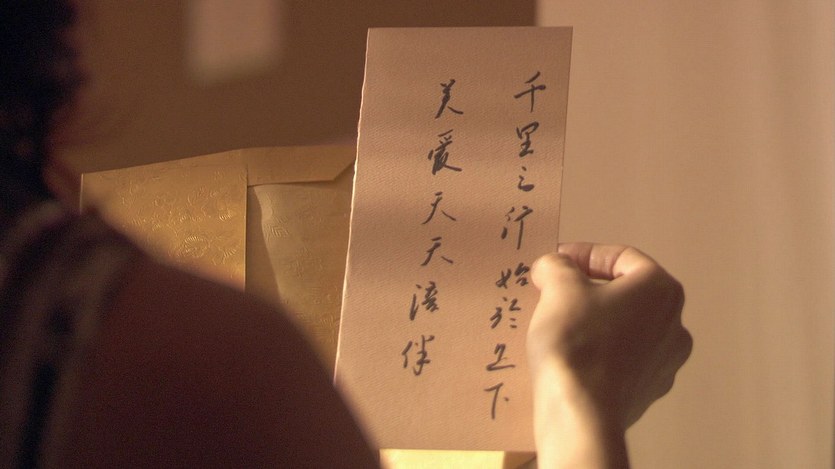 千里之行始於足下
美愛天天陪伴